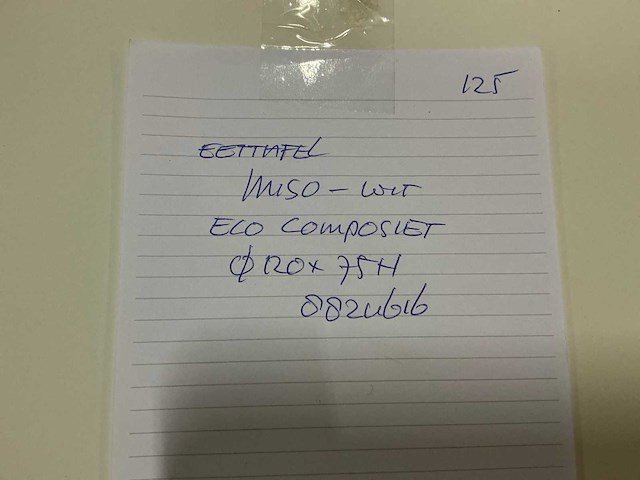 125
EETTAFEL
MISO - WIT
ECO COMPOSIET
Φ 120 x 75H
8824616